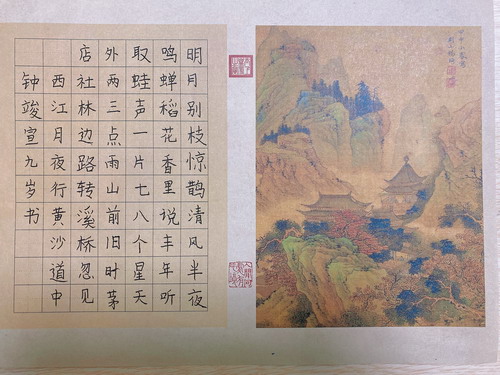 明月别枝惊鹊清风半夜
鸣蝉稻花香里说丰年听
取蛙声一片七八个星天
外两三点雨山前旧时茅
店社林边路转溪桥忽见
西江月夜行黄沙道中
钟竣宣九岁书